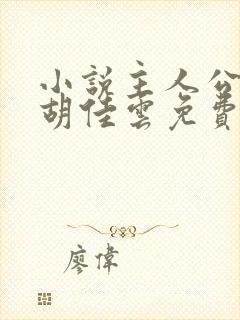 小說主人公
胡佳雲免費
廖偉